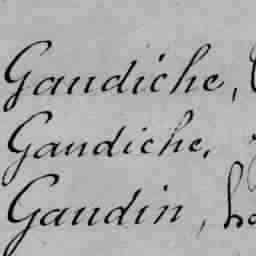 Gaudiche,
Gaudiche,
Gaudin, ha